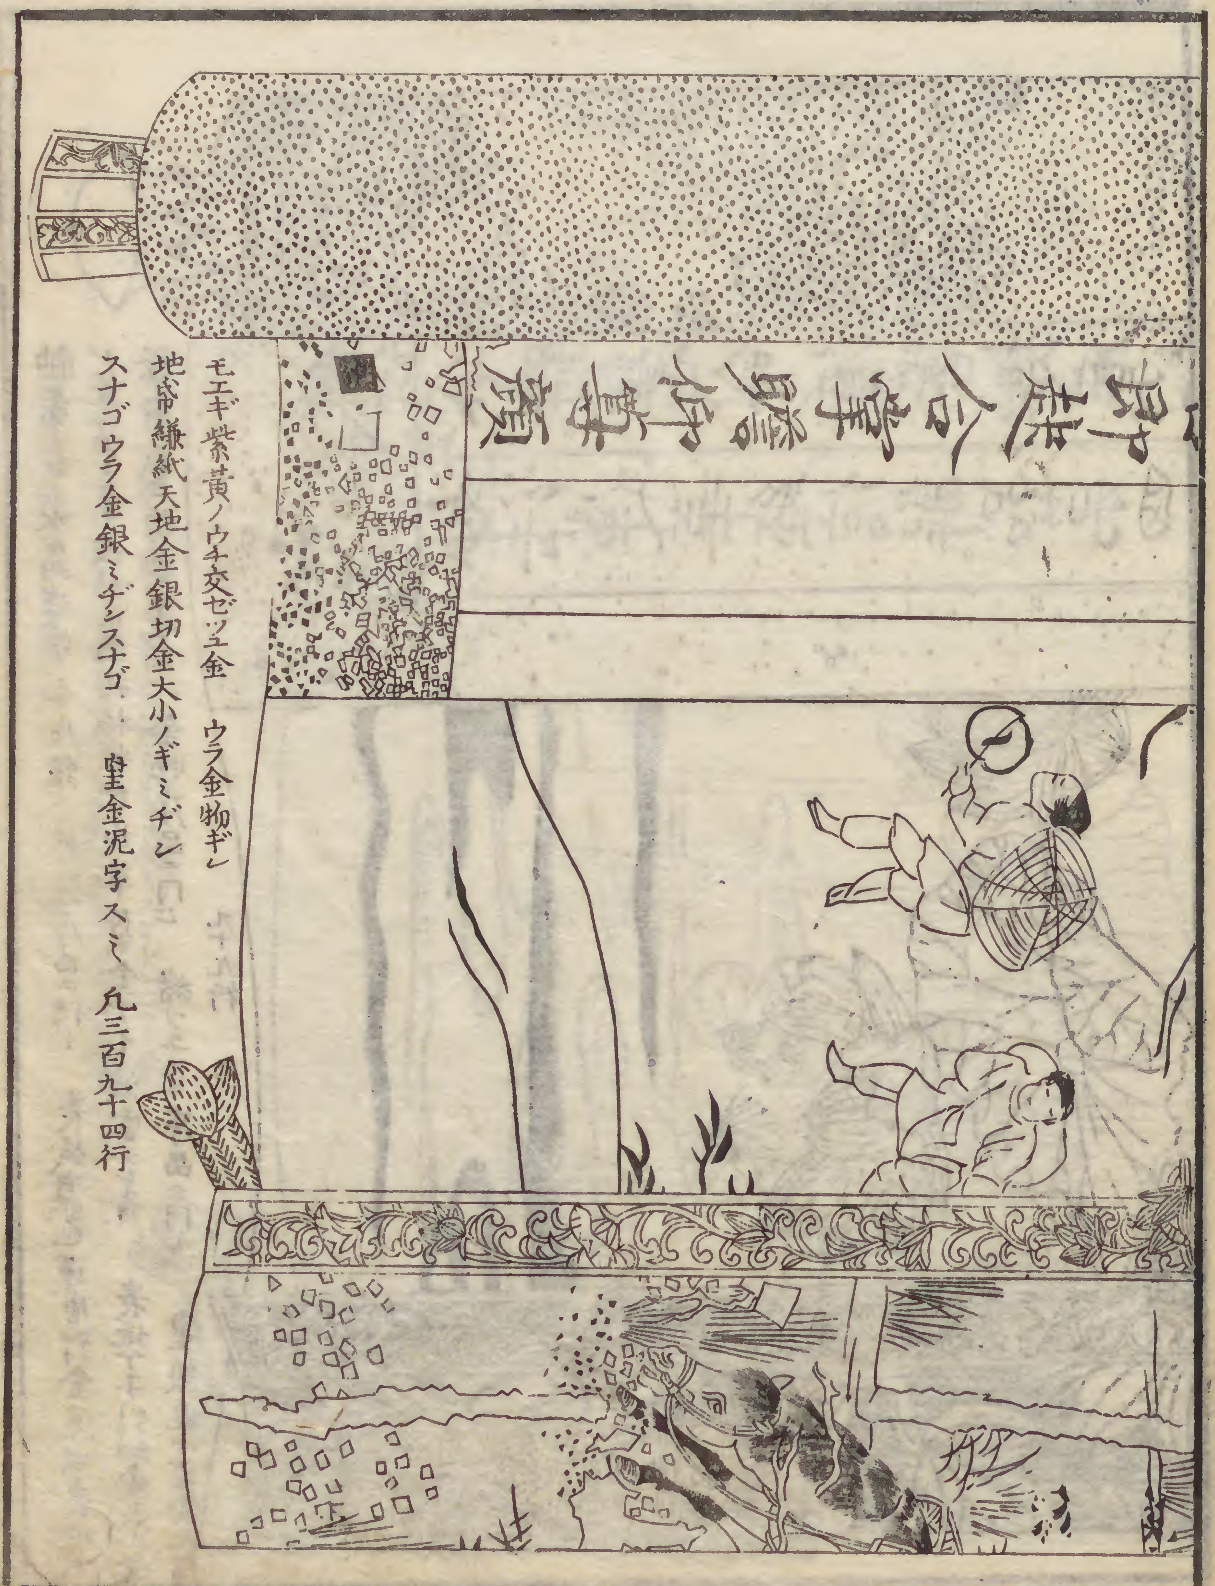 即起合掌瞻仰尊顔
モエギ紫黄ノウチ交ゼツユ金　ウラ金物ギン
地帋縑紙天地金銀切金大小ノギミヂン
スナゴウラ金銀ミヂンスナゴ　罫金泥字スミ　凡三百九十四行